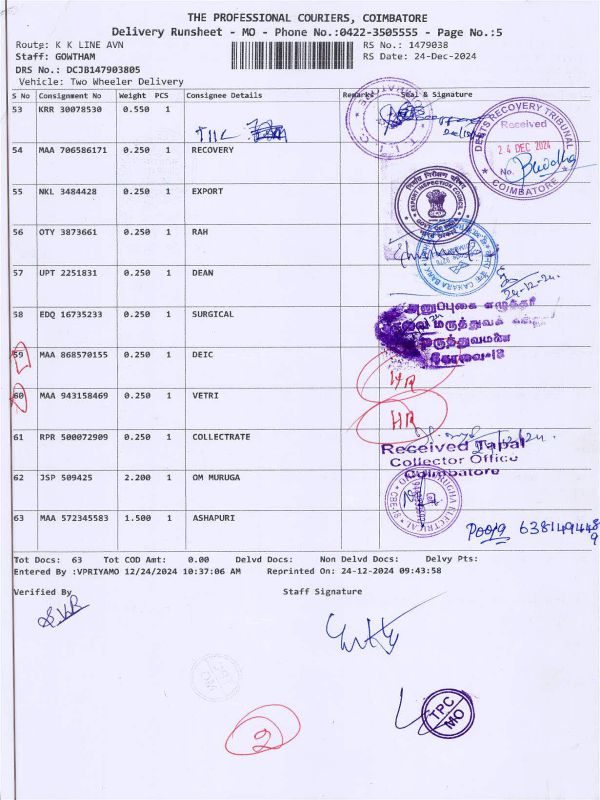 THE PROFESSIONAL COURIERS, COIMBATORE
Delivery Runsheet - MO - Phone No.:0422-3505555 - Page No.:5
Route: K K LINE AVN
RS No.: 1479038
Staff: GOWTHAM
RS Date: 24-Dec-2024
DRS No.: DCJB147903805
Vehicle: Two Wheeler Delivery
S No Consignment No Weight PCS Consignee Details Remarks Seal & Signature
53 KRR 30078530 0.550 1
54 MAA 706586171 0.250 1 RECOVERY
DEBTS RECOVERY TRIBUNAL
Received
24 DEC 2024
No.
COIMBATORE
55 NKL 3484428 0.250 1 EXPORT
EXPORT INSPECTION COUNCIL
56 OTY 3873661 0.250 1 RAH
CANARA BANK
57 UPT 2251831 0.250 1 DEAN
24-12-24.
58 EDQ 16735233 0.250 1 SURGICAL
அனுப்புகை எழுத்தர்
கோவை மருத்துவக்
மருத்துவமனை
கோவை-18
59 MAA 868570155 0.250 1 DEIC
HR
60 MAA 943158469 0.250 1 VETRI
HR
61 RPR 500072909 0.250 1 COLLECTRATE
Received Tapal
Collector Office
Coimbatore
62 JSP 509425 2.200 1 OM MURUGA
63 MAA 572345583 1.500 1 ASHAPURI
Tot Docs: 63 Tot COD Amt: 0.00 Delvd Docs: Non Delvd Docs: Delvy Pts:
Entered By :VPRIYAMO 12/24/2024 10:37:06 AM Reprinted On: 24-12-2024 09:43:58
Verified By Staff Signature
TPC
MO
2